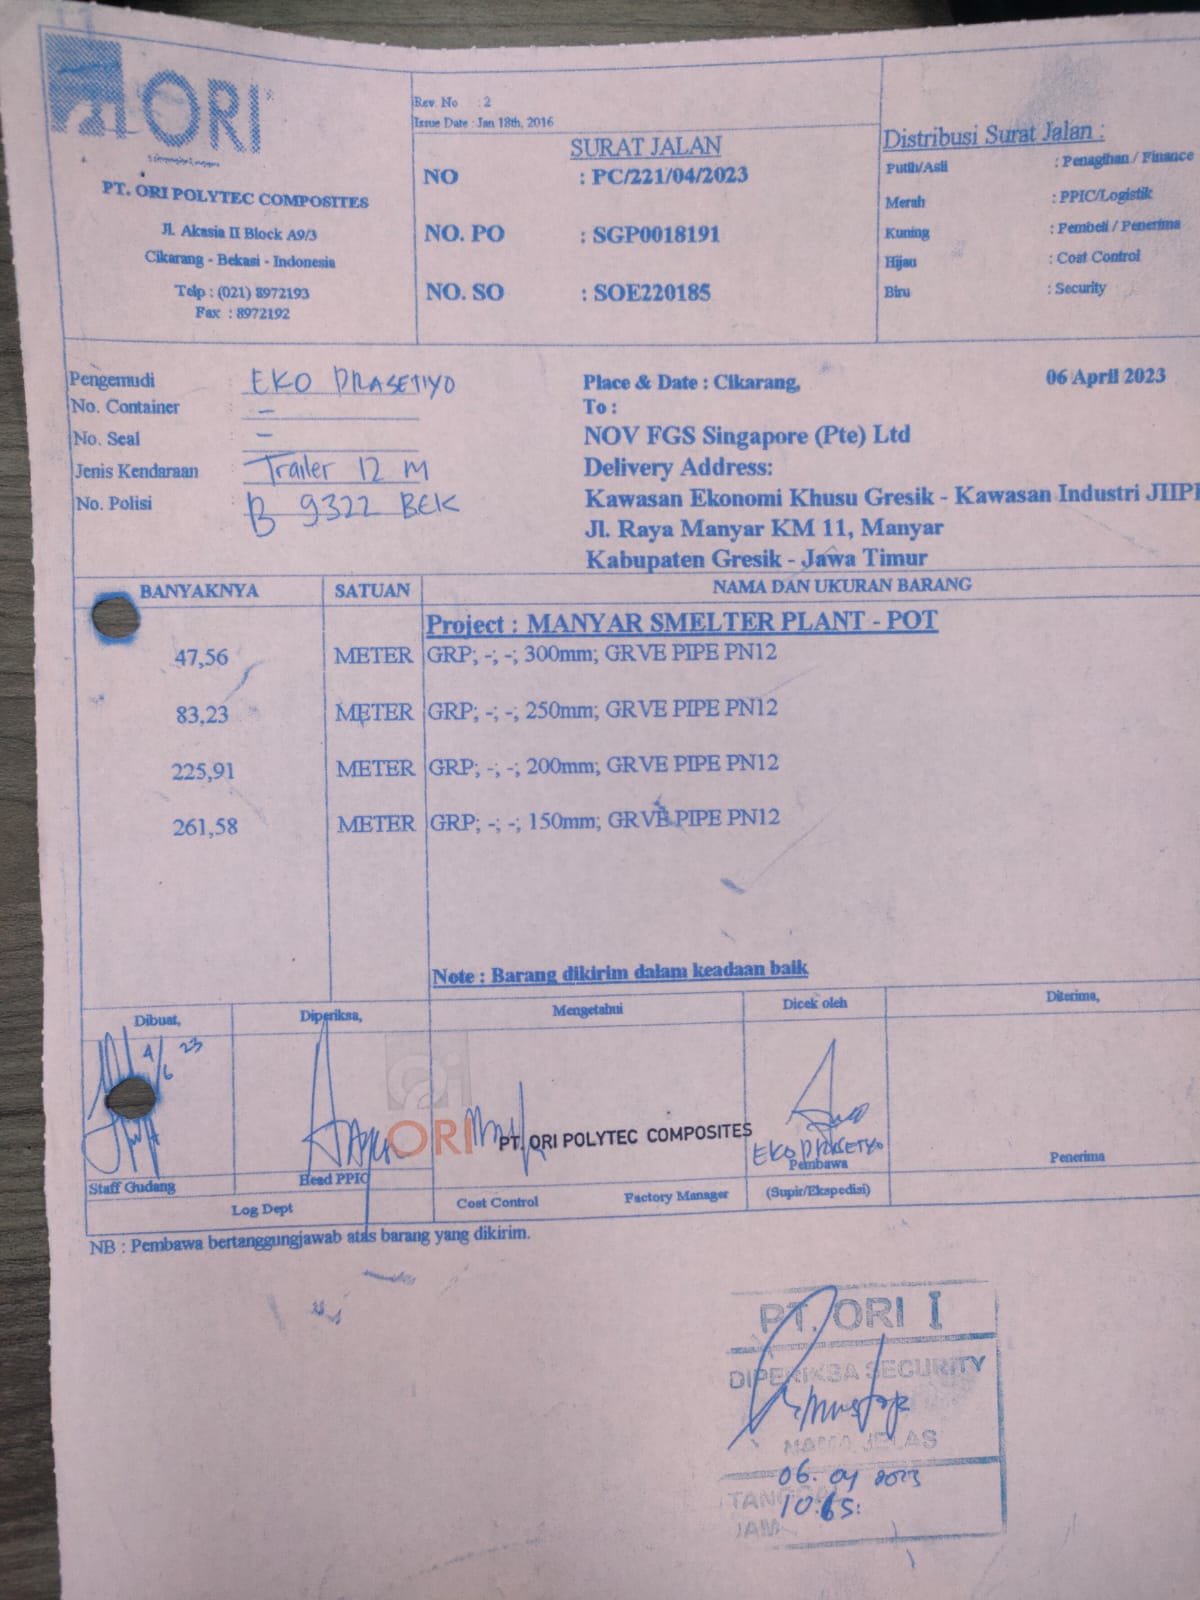 ORI
PT. ORI POLYTEC COMPOSITES
Jl. Akasia II Block A9/3
Cikarang - Bekasi - Indonesia
Telp : (021) 8972193
Fax : 8972192
Rev. No : 2
Issue Date : Jan 18th, 2016
SURAT JALAN
NO : PC/221/04/2023
NO. PO : SGP0018191
NO. SO : SOE220185
Distribusi Surat Jalan :
Putih/Asli : Penagihan / Finance
Merah : PPIC/Logistik
Kuning : Pembeli / Penerima
Hijau : Cost Control
Biru : Security
Pengemudi : EKO PRASETIYO
No. Container : -
No. Seal : -
Jenis Kendaraan : Trailer 12 M
No. Polisi : B 9322 BEK
Place & Date : Cikarang, 06 April 2023
To :
NOV FGS Singapore (Pte) Ltd
Delivery Address:
Kawasan Ekonomi Khusu Gresik - Kawasan Industri JIIPE
Jl. Raya Manyar KM 11, Manyar
Kabupaten Gresik - Jawa Timur
BANYAKNYA SATUAN NAMA DAN UKURAN BARANG
Project : MANYAR SMELTER PLANT - POT
47,56 METER GRP; -; -; 300mm; GRVE PIPE PN12
83,23 METER GRP; -; -; 250mm; GRVE PIPE PN12
225,91 METER GRP; -; -; 200mm; GRVE PIPE PN12
261,58 METER GRP; -; -; 150mm; GRVE PIPE PN12
Note : Barang dikirim dalam keadaan baik
Dibuat, Diperiksa, Mengetahui Dicek oleh Diterima,
4/6 23
ORI PT. ORI POLYTEC COMPOSITES
EKO PRASETYO
Staff Gudang Head PPIC Pembawa Penerima
Log Dept Cost Control Factory Manager (Supir/Ekspedisi)
NB : Pembawa bertanggungjawab atas barang yang dikirim.
PT. ORI I
DIPERIKSA SECURITY
NAMA JELAS
06. 04 2023
TANGGAL
JAM